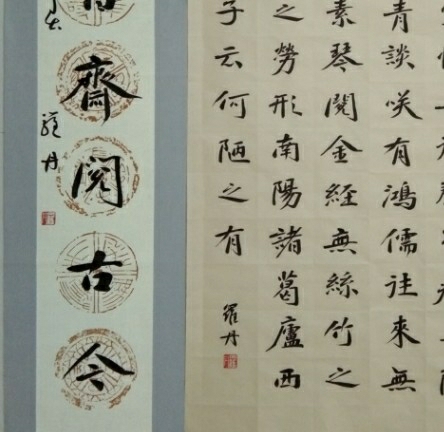 青談咲有鴻儒往來無
素琴閱金經無絲竹之
之勞形南陽諸葛廬西
子云何陋之有
羅丹
齋閱古今
羅丹